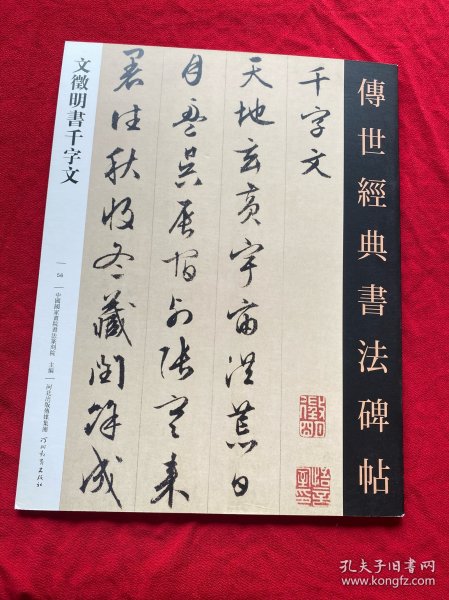 傳世經典書法碑帖
千字文
天地玄黃宇宙洪荒日
月盈昃辰宿列張寒來
暑往秋收冬藏閏餘成
文徵明書千字文
56
中國國家畫院書法篆刻院 主編
河北出版傳媒集團
河北教育出版社
孔夫子旧书网
www.kongfz.com